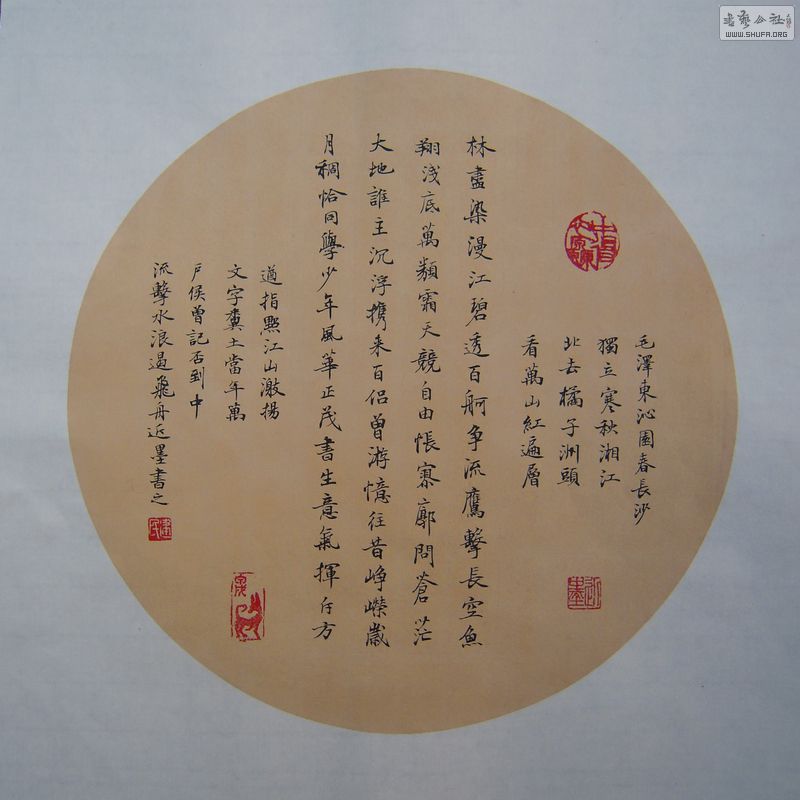 毛澤東沁園春長沙
獨立寒秋湘江
北去橘子洲頭
看萬山紅遍層
林盡染漫江碧透百舸争流鷹擊長空魚
翔浅底萬類霜天競自由悵寥廓問蒼茫
大地誰主沉浮携来百侣曾游憶往昔崢嶸歲
月稠恰同學少年風華正茂書生意氣揮斥方
遒指點江山激揚
文字糞土當年萬
户侯曾記否到中
流擊水浪遏飛舟近墨書之
近墨
書藝公社
WWW.SHUFA.ORG